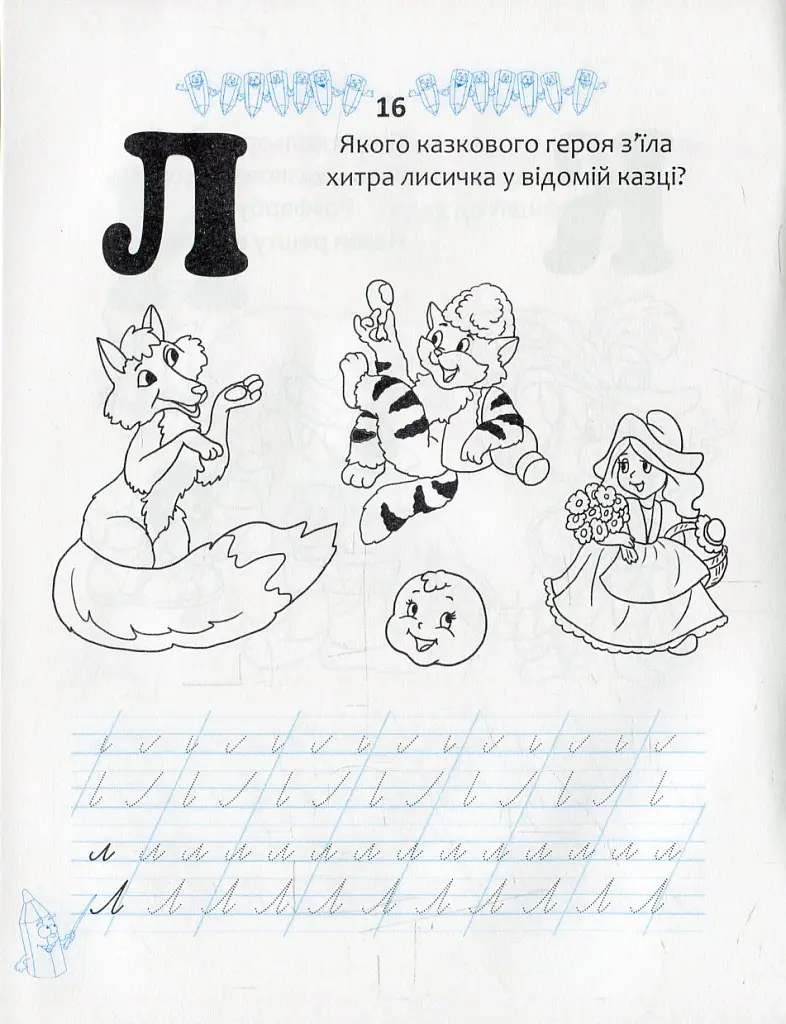 16
Л
Якого казкового героя з’їла
хитра лисичка у відомій казці?
л л л л л л л л л л л л л л
Л Л Л Л Л Л Л Л Л Л Л